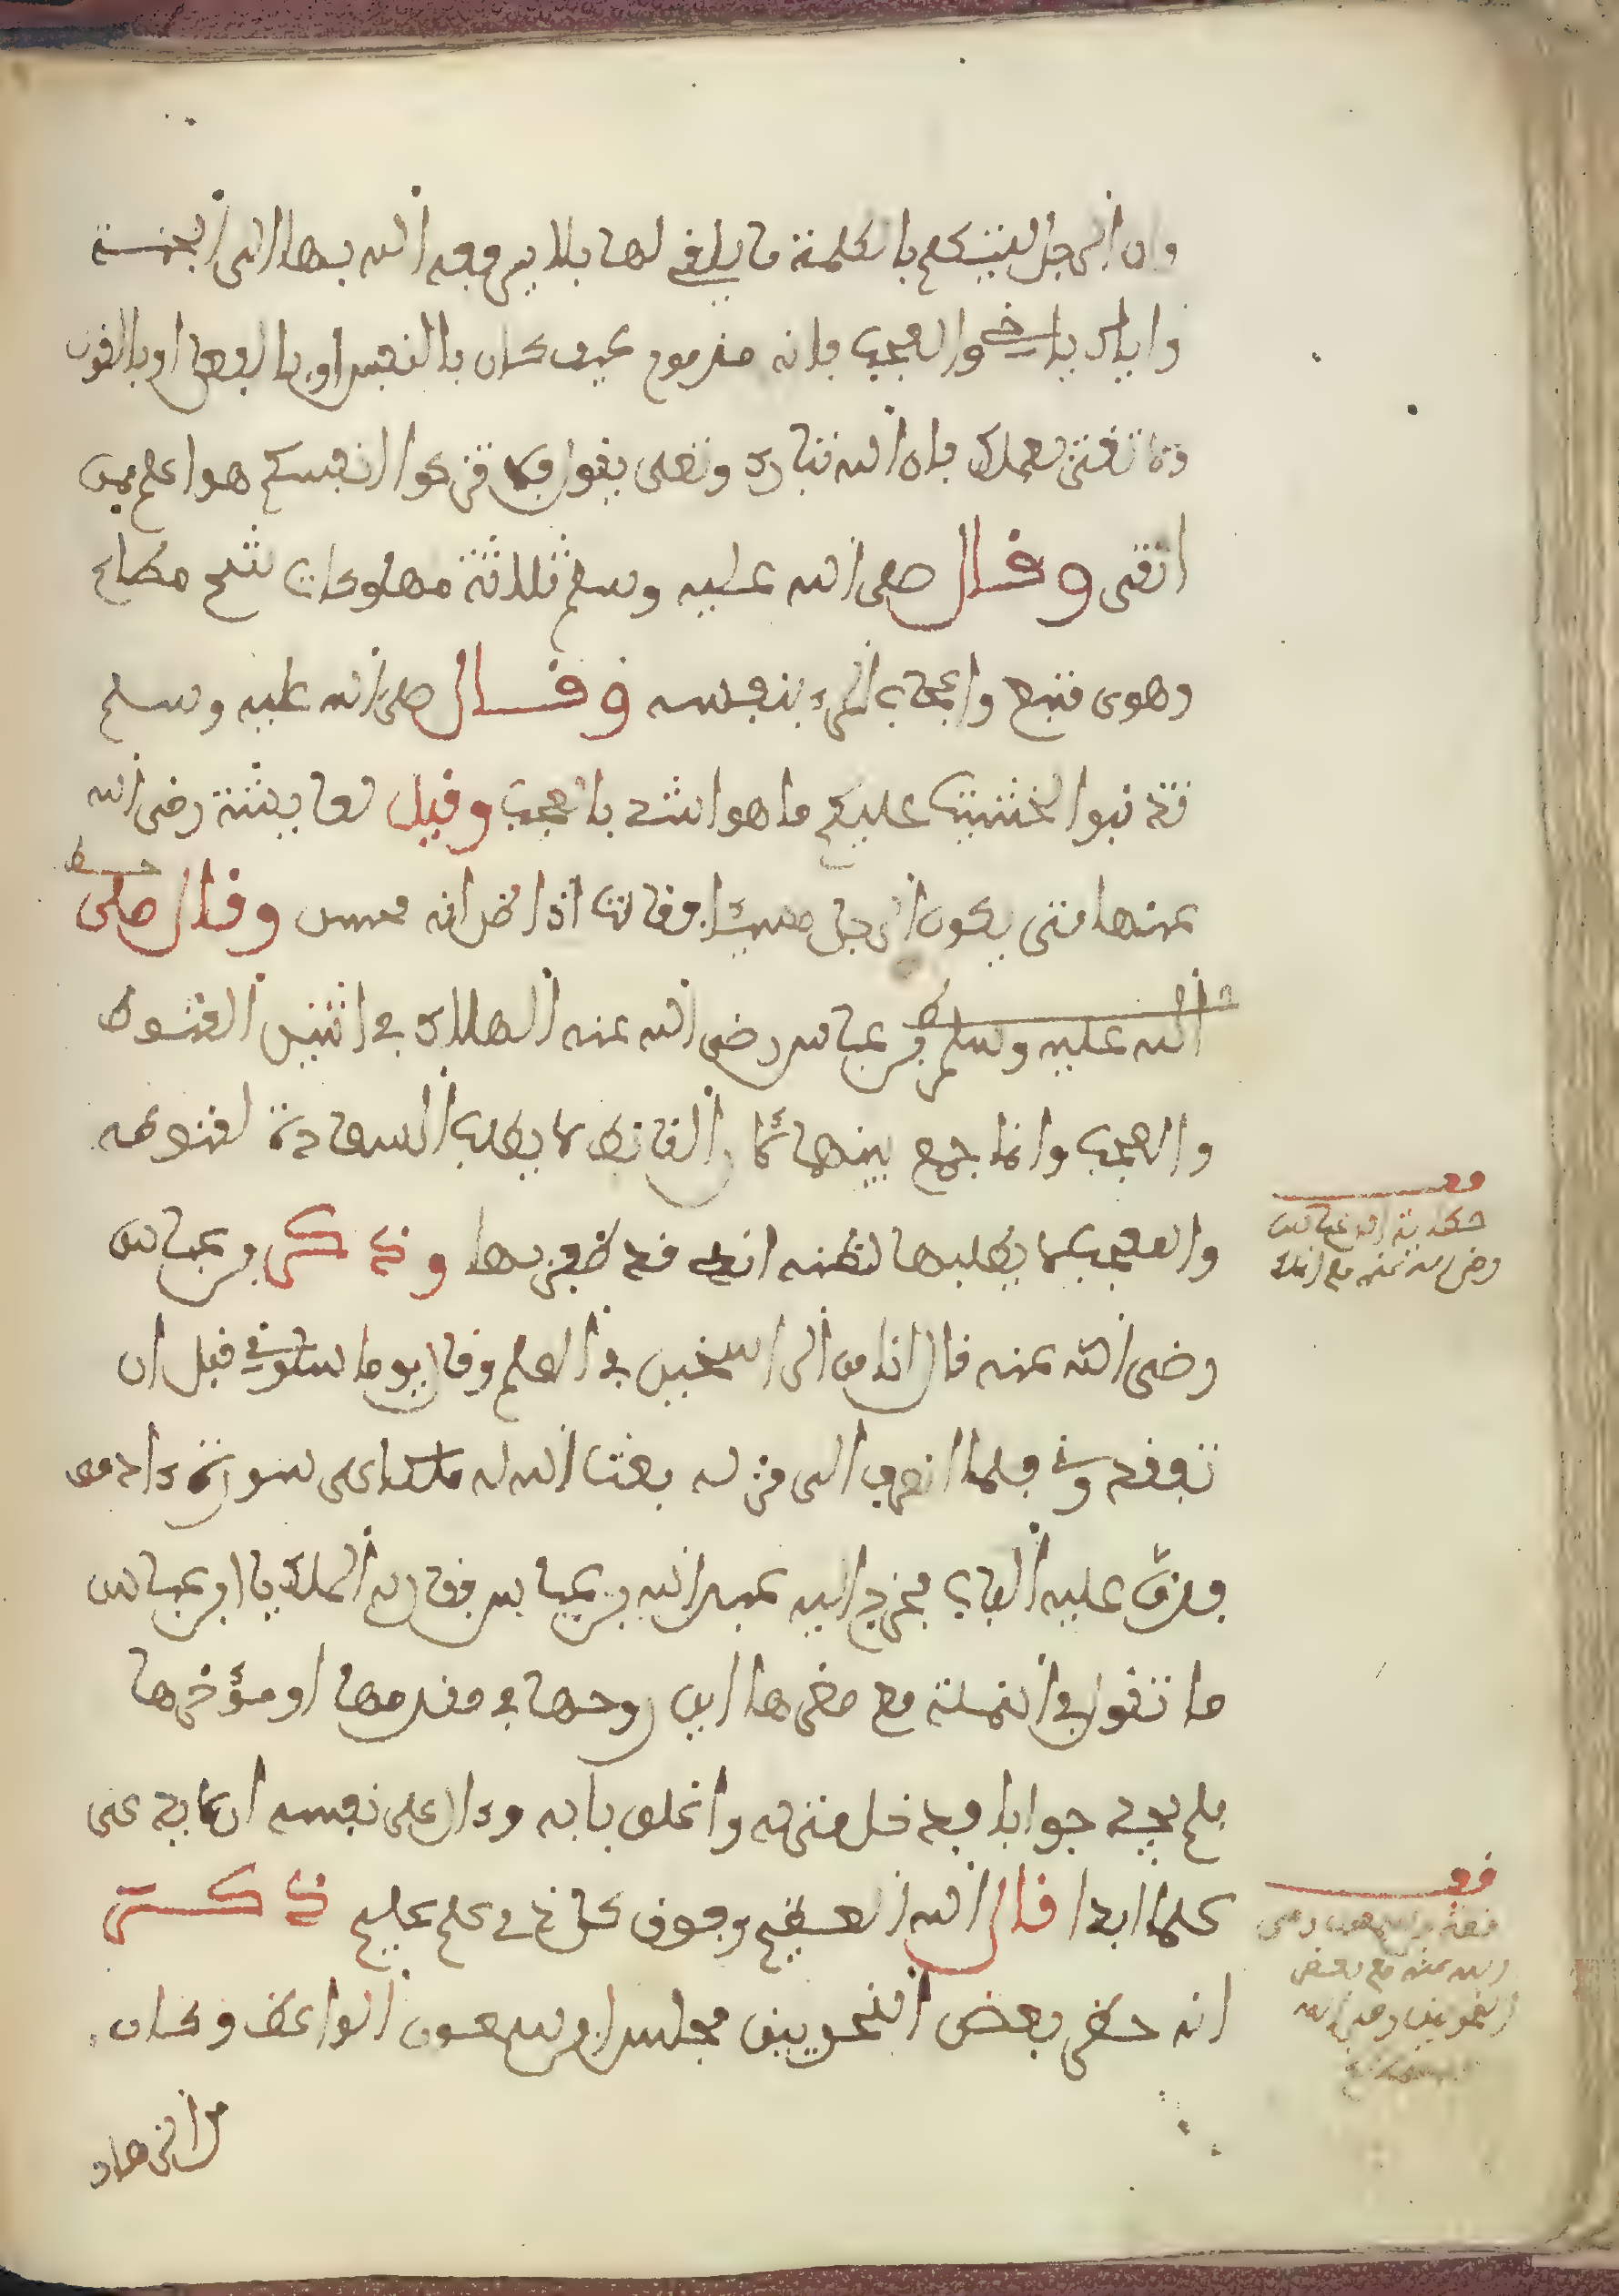 وان الرجل ليتكلم بالكلمة ما يلقي لها بالا يرفعه الله بها الى الجنة
واياك يا اخي والعجب فانه مذموم كيف كان بالنفس او بالفعل او بالقول
ولا تغتر بعملك فان الله تبارك وتعلى يقول فلا تزكوا انفسكم هو اعلم بمن
اتقى وقال صلى الله عليه وسلم ثلاثة مهلكات شح مطاع
وهوى متبع واعجاب المرء بنفسه وقال صلى الله عليه وسلم
تذنبوا لخشيت عليكم ما هو اشد بالعجب وقيل لعايشة رضي الله
عنها متى يكون الرجل مسيئا فقالت اذا ظن انه محسن وقال صلى
الله عليه وسلم بن عباس رضي الله عنه الهلاك في اثنين القنوط
والعجب وانما جمع بينهما لان القانط لا يطلب السعادة لقنوطه
والعجب لا يطلبها لظنه انه قد ظفر بها وذكر بن عباس
رضي الله عنه قال انا من الراسخين في العلم وقال يوما سلوني قبل ان
تفقدوني فلما انصرف الى منزله بعث الله له ملكا على سورة ءادمي
فدق عليه الباب فخرج اليه عبد الله بن عباس فقال له الملك يا ابن عباس
ما تقول في النملة مع صغرها اين روحها في مقدمها او مؤخرها
فلم يجد جوابا فدخل منزله واغلق بابه وءال على نفسه ان لا يدعى
علما ابدا قال الله العظيم وفوق كل ذي علم عليم ذكر
انه حضر بعض النحويين مجلس ابن سمعون الواعظ وكان
من الزهاد
قف
حكاية ابن عباس
رضي الله عنه مع الملك
قف
قصة ابن سمعون رضي
الله عنه مع بعض
النحويين رضي الله